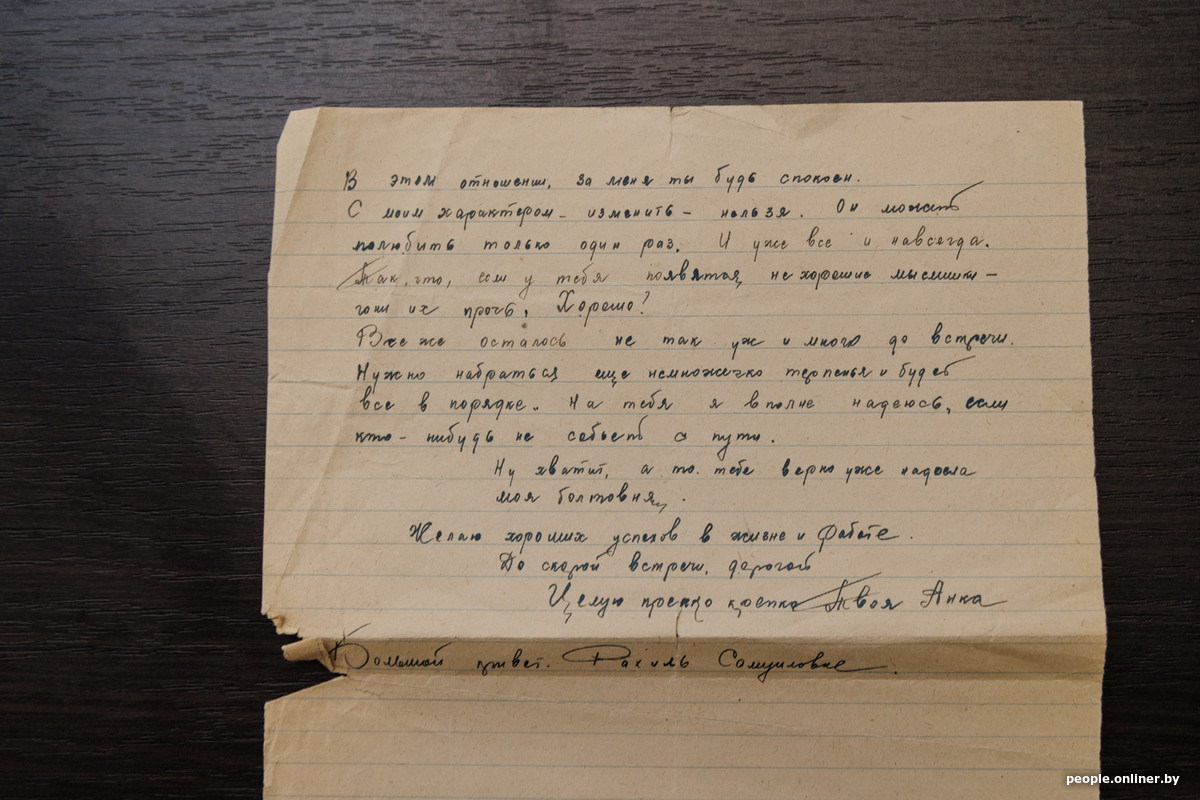 В этом отношении, за меня ты будь спокоен.
С моим характером – изменить – нельзя. Он может
полюбить только один раз. И уже все и навсегда.
Так, что, если у тебя появятся, не хорошие мыслишки –
гони их прочь, Хорошо?
Все же осталось не так уж и много до встречи.
Нужно набраться еще немножечко терпенья и будет
все в порядке. На тебя я вполне надеюсь, если
кто-нибудь не собьет с пути.
Ну хватит, а то тебе верно уже надоела
моя болтовня.
Желаю хороших успехов в жизне и работе.
До скорой встречи, дорогой
Целую крепко крепко Твоя Анка
Большой привет. Рахиль Самуиловне.
people.onliner.by